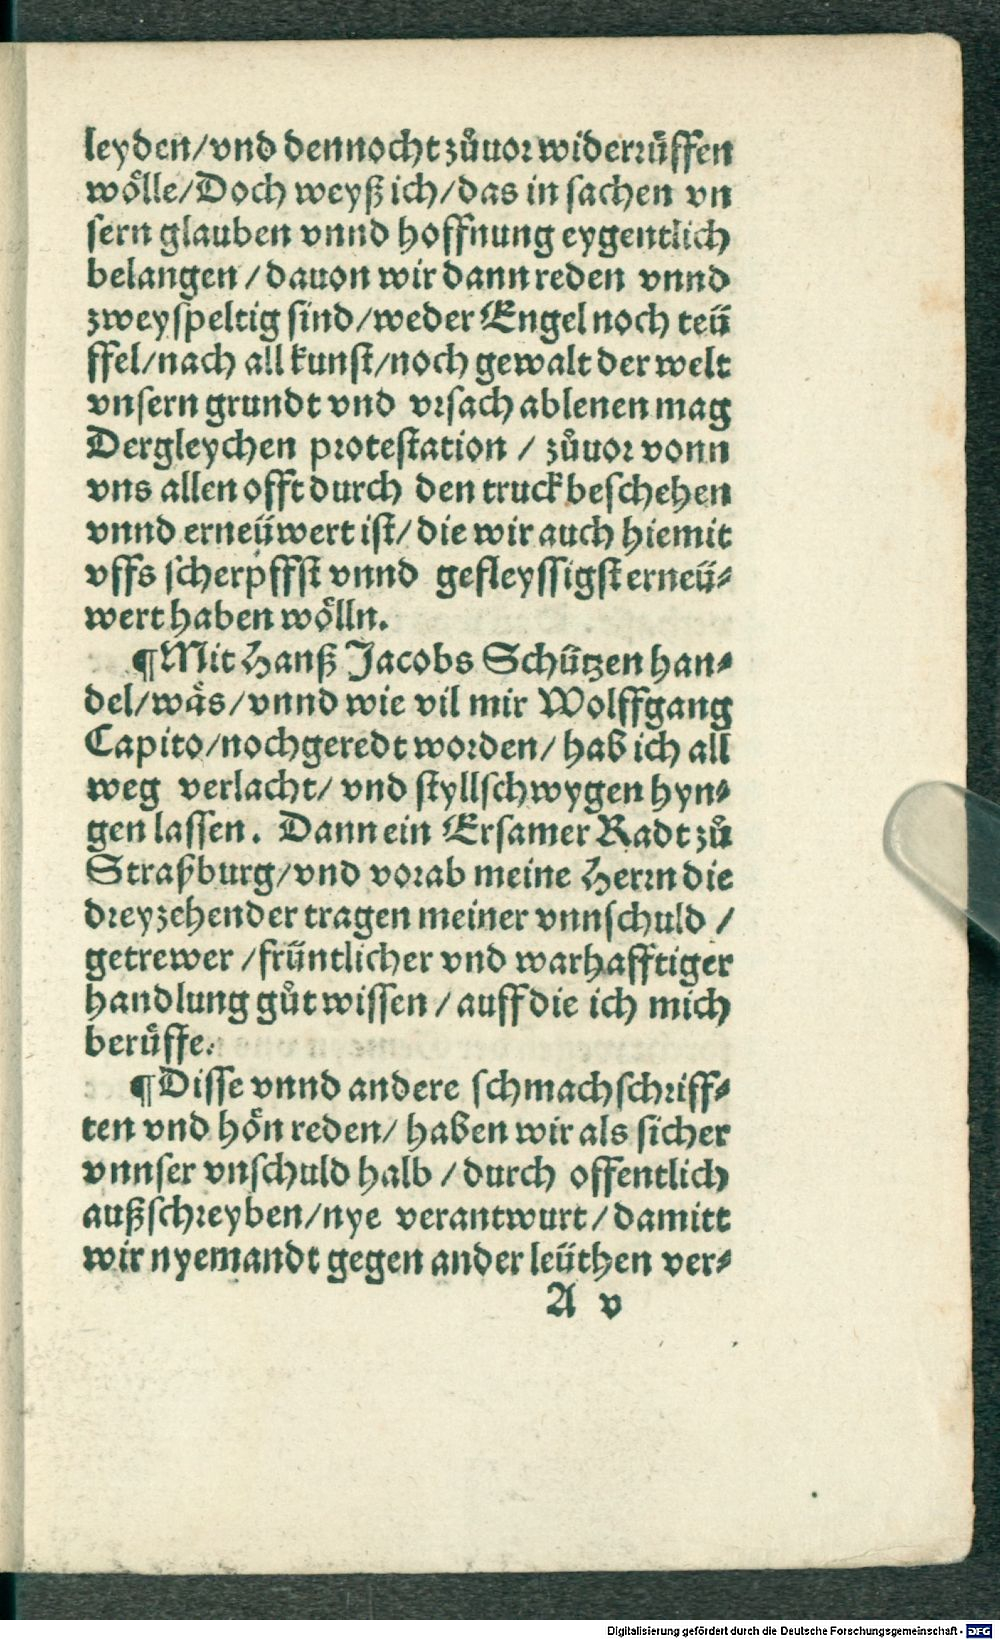 leyden/vnd dennocht zůuor widerrůffen
wőlle/Doch weyß ich/das in sachen vn
sern glauben vnnd hoffnung eygentlich
belangen/dauon wir dann reden vnnd
zweyspeltig sind/weder Engel noch teü
ffel/nach all kunst/noch gewalt der welt
vnsern grundt vnd vrsach ablenen mag
Dergleychen protestation / zůuor vonn
vns allen offt durch den truck beschehen
vnnd erneüwert ist/die wir auch hiemit
vffs scherpffst vnnd gefleyssigst erneü⸗
wert haben wőlln.
¶Mit Hanß Jacobs Schützen han⸗
del/wäs/vnnd wie vil mir Wolffgang
Capito/nochgeredt worden/hab ich all
weg verlacht/vnd styllschwygen hyn⸗
gen lassen. Dann ein Ersamer Radt zů
Straßburg/vnd vorab meine Herrn die
dreyzehender tragen meiner vnnschuld /
getrewer/früntlicher vnd warhafftiger
handlung gůt wissen/auff die ich mich
berůffe.
¶Disse vnnd andere schmachschriff⸗
ten vnd hőn reden/haben wir als sicher
vnnser vnschuld halb/durch offentlich
außschreyben/nye verantwurt/damitt
wir nyemandt gegen ander leüthen ver⸗
A v
Digitalisierung gefördert durch die Deutsche Forschungsgemeinschaft - DFG